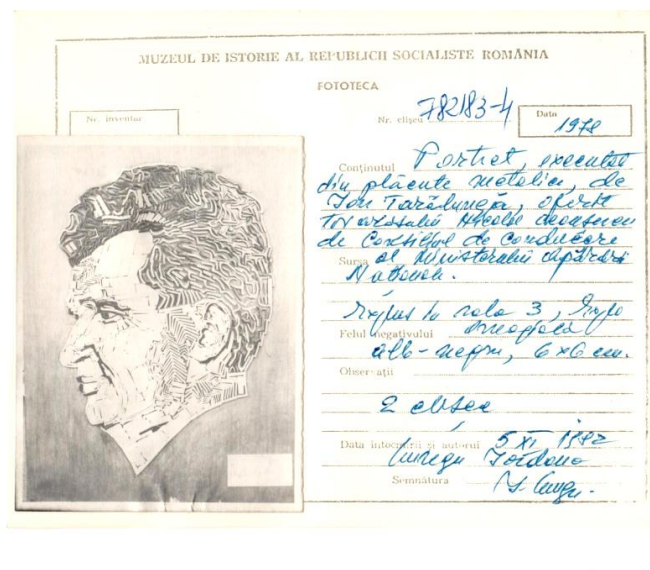 MUZEUL DE ISTORIE AL REPUBLICII SOCIALISTE ROMÂNIA
FOTOTECA
Nr. inventar
Nr. clișeu 782183-4
Data 1978
Conținutul Portret, executat
din plăcuțe metalice, de
Ion Tarălungă, oferit
tovarășului Nicolae Ceaușescu
de Consiliul de Conducere
Sursa al Ministerului Apărării
Naționale.
Expus la sala 3, Expo
Felul negativului omagială
alb-negru, 6x6 cm.
Observații
2 clișee
Data întocmirii și autorul 5 XI 1982
Iordana
Semnătura